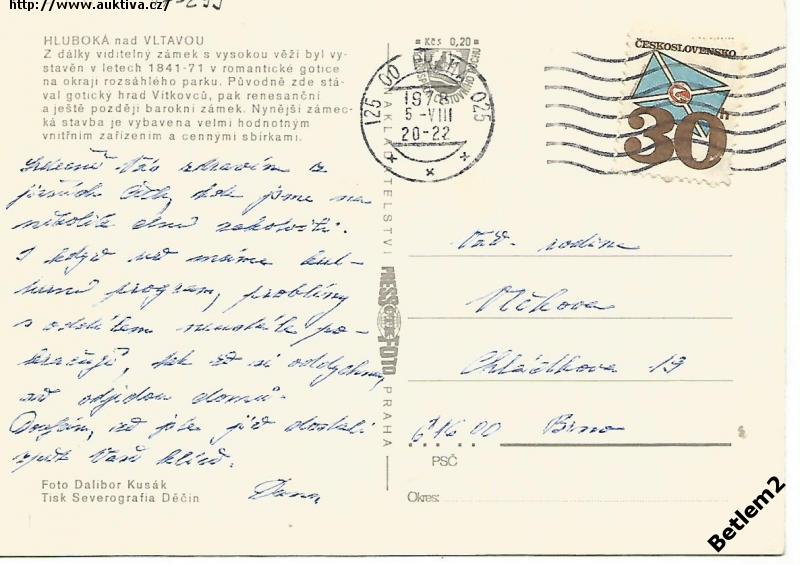 http://www.auktiva.cz/
HLUBOKÁ nad VLTAVOU
Z dálky viditelný zámek s vysokou věží byl vy-
stavěn v letech 1841-71 v romantické gotice
na okraji rozsáhlého parku. Původně zde stá-
val gotický hrad Vítkovců, pak renesanční
a ještě později barokní zámek. Nynější zámec-
ká stavba je vybavena velmi hodnotným
vnitřním zařízením a cennými sbírkami.
Srdečně Vás zdravím z
jižních Čech, kde jsme na
několik dnů zakotvili.
I když zde máme kul-
turní program, problémy
s oddílem neustále po-
kračují, tak až si oddychnu,
až odjedou domů.
Doufám, že jste již dostali
zpět Vaše klíče.
Dana
Foto Dalibor Kusák
Tisk Severografia Děčín
Kčs 0,20
125 025
197
5-VIII
20-22
NAKLADATELSTVÍ
PRESSFOTO
PRAHA
ČESKOSLOVENSKO
30h
Váž. rodina
Vlčkova
Chládkova 19
616 00 Brno
PSČ
Okres:
Betlem2